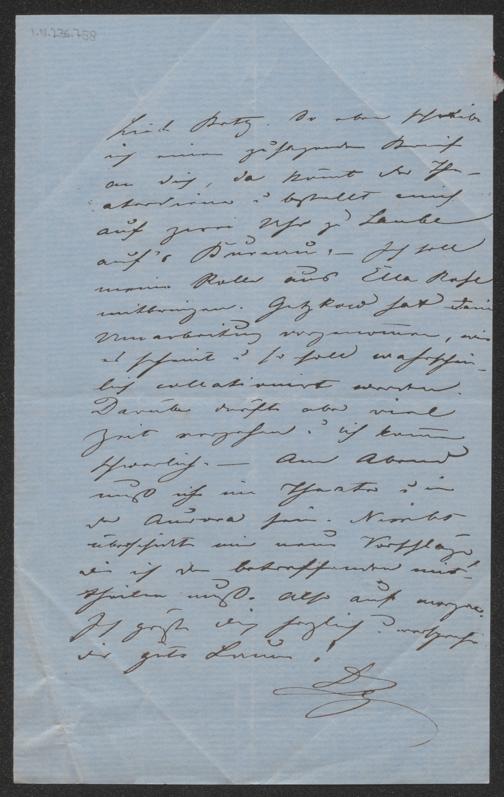 I.N. 236.758
Lieb. Betz. So eben schreibe
ich einen zusagenden Brief
an dich, da kömt der Th-
aterdiener u bestellt mich
auf zwei Uhr zu Laube
auf's Bureau. – Ich soll
meine Rolle aus Ella Rose
mitbringen. Gutzkow hat
Umarbeitung vorgenommen, wie
es scheint u so soll wahrschein-
lich collationirt werden.
Darüber dürfte aber viel
Zeit vergehen u ich komme
schwerlich. – Am Abend
muß ich im Theater u in
der Aurora sein.
überschickt mir neue Vorschläge
die ich den betreffenden mit-
theilen muß. Also auf morgen.
Ich grüße dich herzlich u
dir gute Laune!